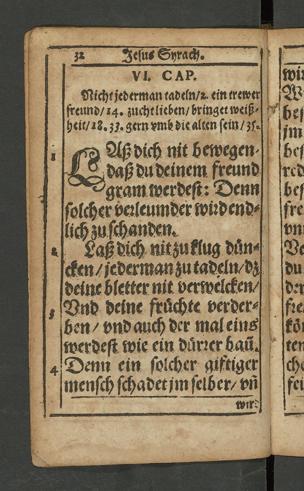 32 Jesus Syrach.
VI. CAP.
Nicht jederman tadeln/2. ein trewer
freund/14. zucht lieben/bringet weiß-
heit/18. 33. gern vmb die alten sein/35.
1 LAß dich nit bewegen-
daß du deinem freund
gram werdest: Denn
solcher verleumder wird end-
lich zu schanden.
2 Laß dich nit zu klug dün-
cken/jederman zu tadeln/dz
deine bletter nit verwelcken/
3 Vnd deine früchte verder-
ben/vnd auch der mal eins
werdest wie ein dürrer baū.
4 Denn ein solcher giftiger
mensch schadet jm selber/vn̄
wir: